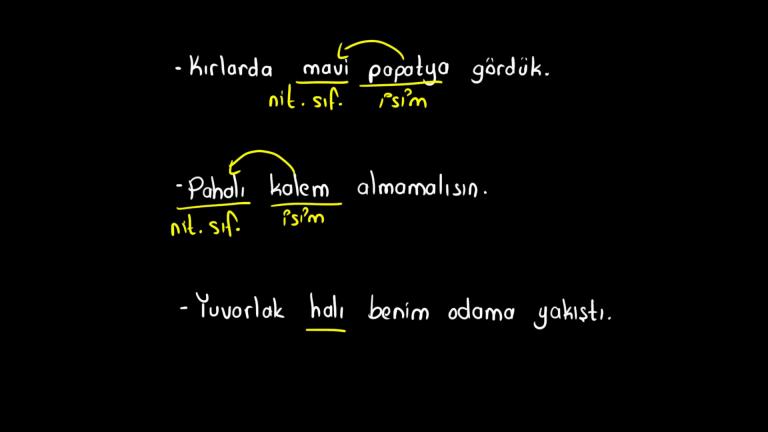 - Kırlarda mavi papatya gördük.
nit. sıf. isim
- Pahalı kalem almamalısın.
nit. sıf. isim
- Yuvarlak halı benim odama yakıştı.